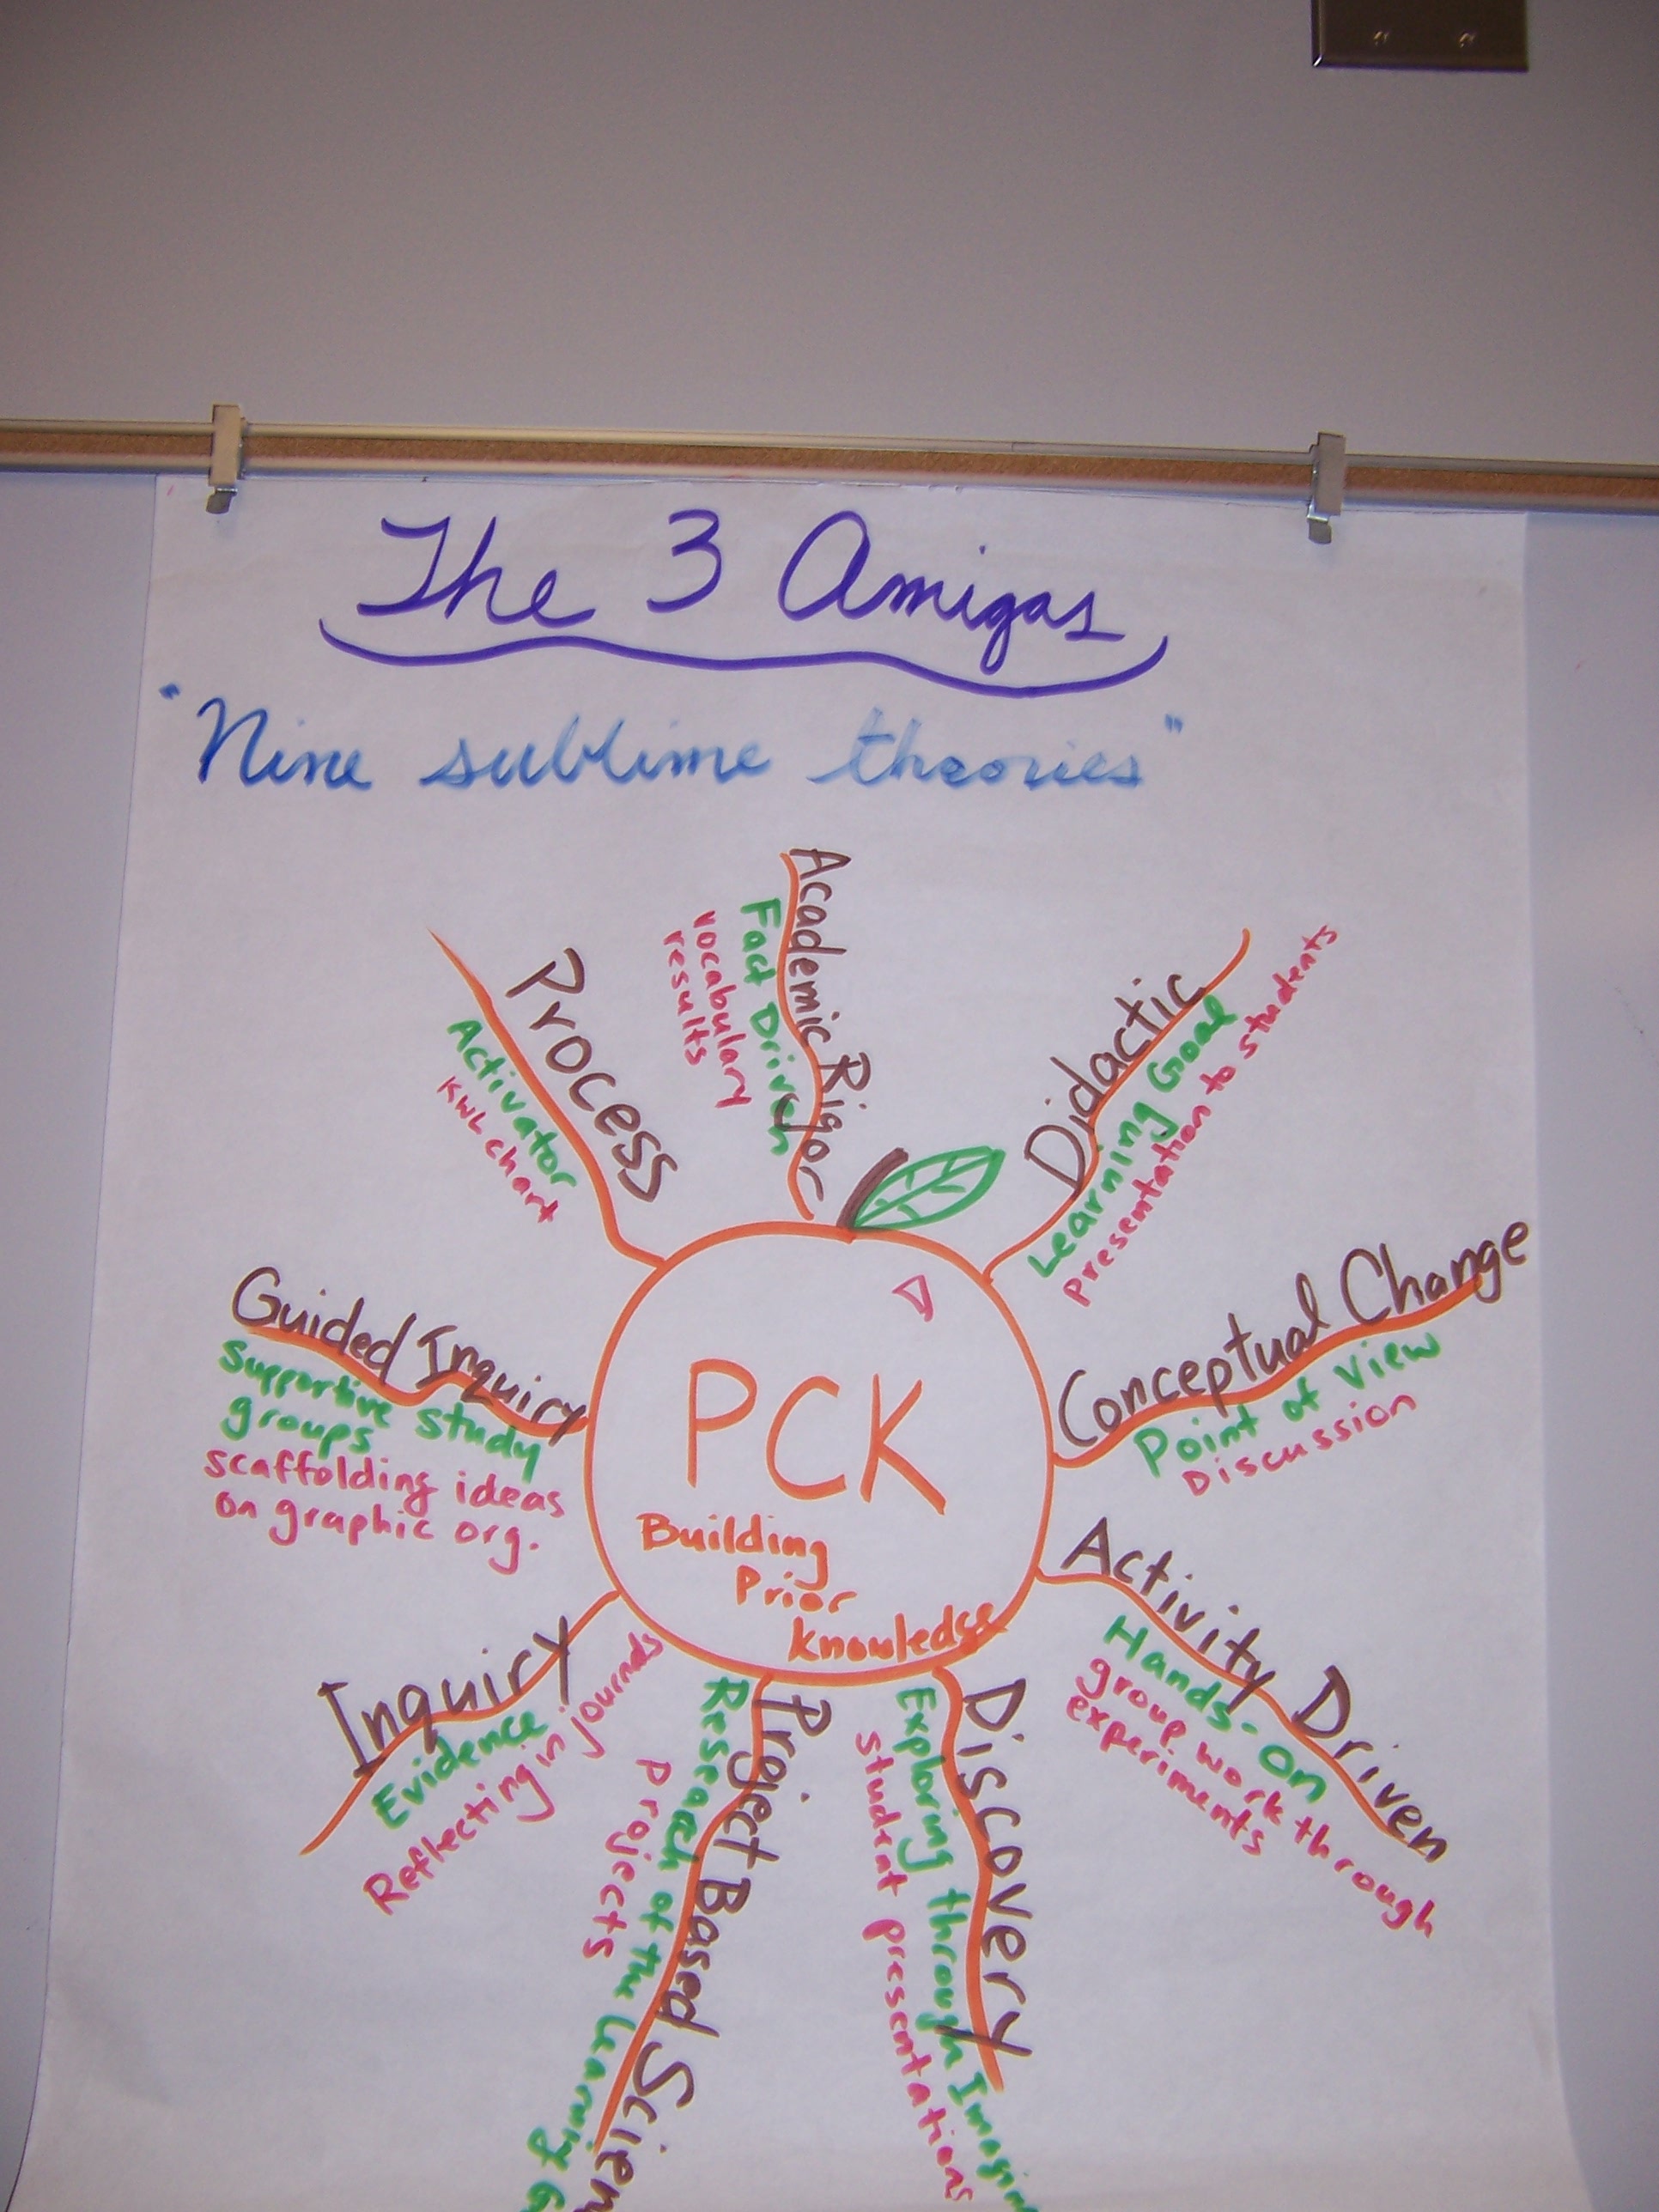 The 3 Amigas
"Nine sublime theories"
Academic Rigor
Fact Driven
vocabulary
results
Didactic
Learning Goal
Presentation to students
Conceptual Change
Point of View
Discussion
Activity Driven
Hands-On
group work through
experiments
Discovery
Exploring through Imagin
student presentations
Project Based Scien
Research of the Learning G
Projects
Inquiry
Evidence
Reflecting in journals
Guided Inquiry
Supportive study
groups
scaffolding ideas
on graphic org.
Process
Activator
KWL chart
PCK
Building
Prior
knowledge